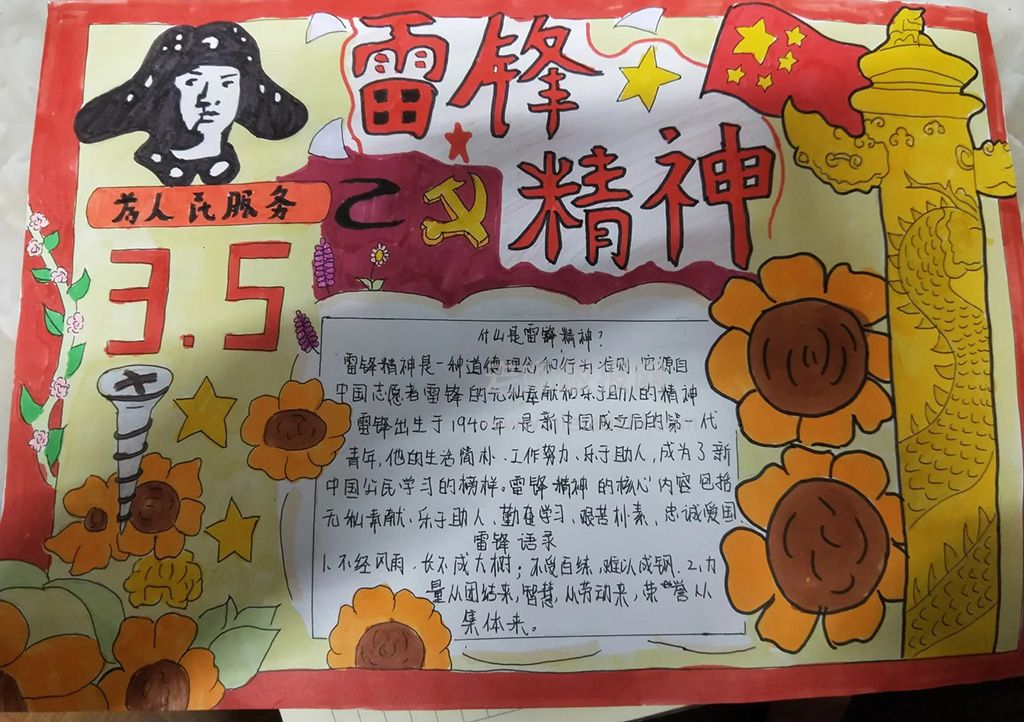 雷锋
精神
为人民服务
3.5
什么是雷锋精神?
雷锋精神是一种道德理念和行为准则,它源自
中国志愿者雷锋的无私奉献和乐于助人的精神
雷锋出生于1940年,是新中国成立后的第一代
青年,他的生活简朴、工作努力、乐于助人,成为了新
中国公民学习的榜样。雷锋精神的核心内容包括
无私奉献、乐于助人、勤在学习、艰苦朴素、忠诚爱国
雷锋语录
1、不经风雨,长不成大树;不受百练,难以成钢.2、力
量从团结来,智慧从劳动来,荣誉从
集体来。